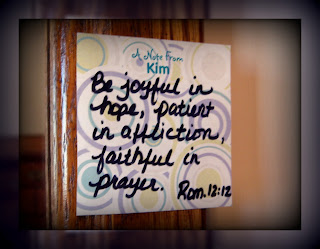 A Note From
Kim
Be joyful in
hope, patient
in affliction,
faithful in
prayer. Rom. 12:12